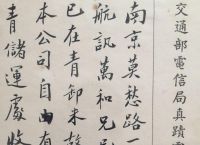 交通部電信局真蹟電
南京莫愁路一
航訊萬和兄
已在青卸未
本公司自由
青儲運處收